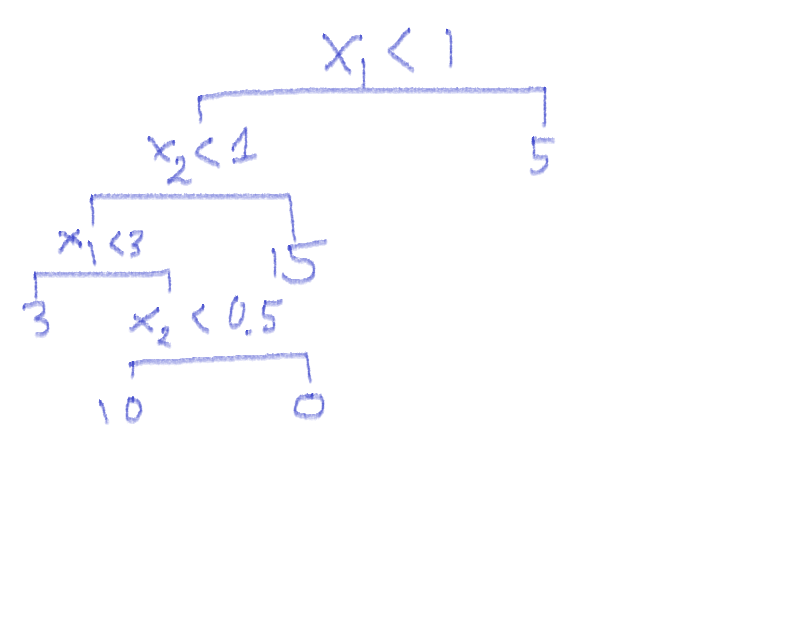 X₁ < 1
x₂ < 1 5
x₁ < 3 15
3 x₂ < 0.5
10 0